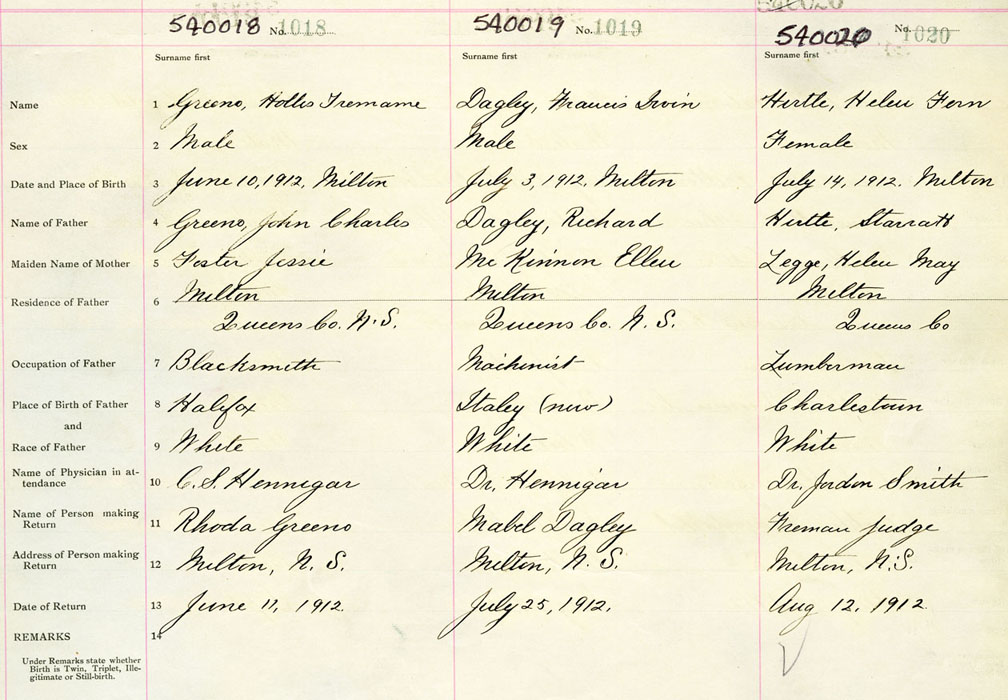 540018 No. 1018 540019 No. 1019 540020 No. 1020
Surname first Surname first Surname first
Name 1 Greeno, Hollis Tremame Dagley, Francis Irvin Hirtle, Helen Fern
Sex 2 Male Male Female
Date and Place of Birth 3 June 10, 1912, Milton July 3, 1912, Milton July 14, 1912. Milton
Name of Father 4 Greeno, John Charles Dagley, Richard Hirtle, Starratt
Maiden Name of Mother 5 Foster Jessie Mc Kinnon Ellen Legge, Helen May
Residence of Father 6 Milton Milton Milton
Queens Co. N.S. Queens Co. N.S. Queens Co
Occupation of Father 7 Blacksmith Machinist Lumberman
Place of Birth of Father 8 Halifax Charlestown
and
Race of Father 9 White White White
Name of Physician in at-
tendance 10 C.S. Hennigar Dr. Hennigar Dr. Jordon Smith
Name of Person making
Return 11 Rhoda Greeno Mabel Dagley Freman Judge
Address of Person making
Return 12 Milton, N.S. Milton, N.S. Milton, N.S.
Date of Return 13 June 11, 1912. July 25, 1912. Aug 12, 1912
REMARKS 14
Under Remarks state whether
Birth is Twin, Triplet, Ille-
gitimate or Still-birth.